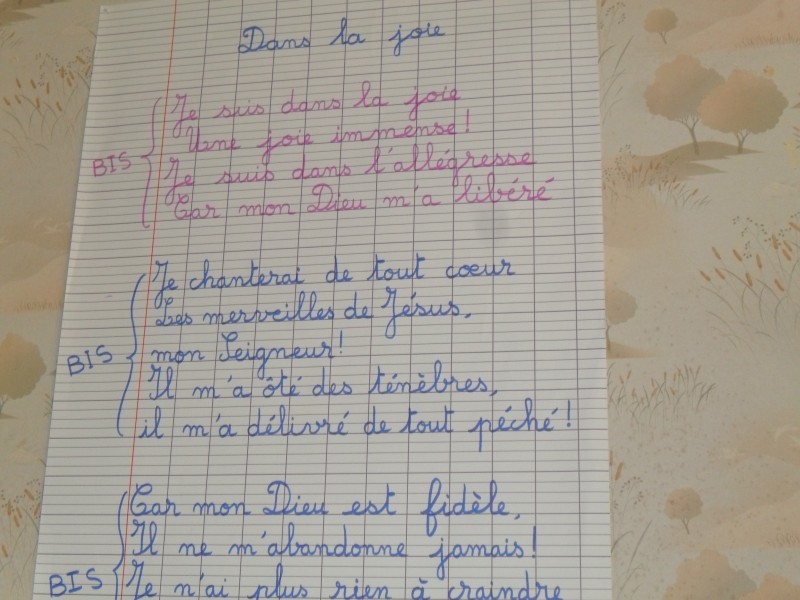 Dans la joie
Je suis dans la joie
Une joie immense!
BIS
Je suis dans l'allégresse
Car mon Dieu m'a libéré
Je chanterai de tout coeur
Les merveilles de Jésus,
BIS
mon Seigneur!
Il m'a ôté des ténèbres,
il m'a délivré de tout péché!
Car mon Dieu est fidèle,
Il ne m'abandonne jamais!
BIS
Je n'ai plus rien à craindre